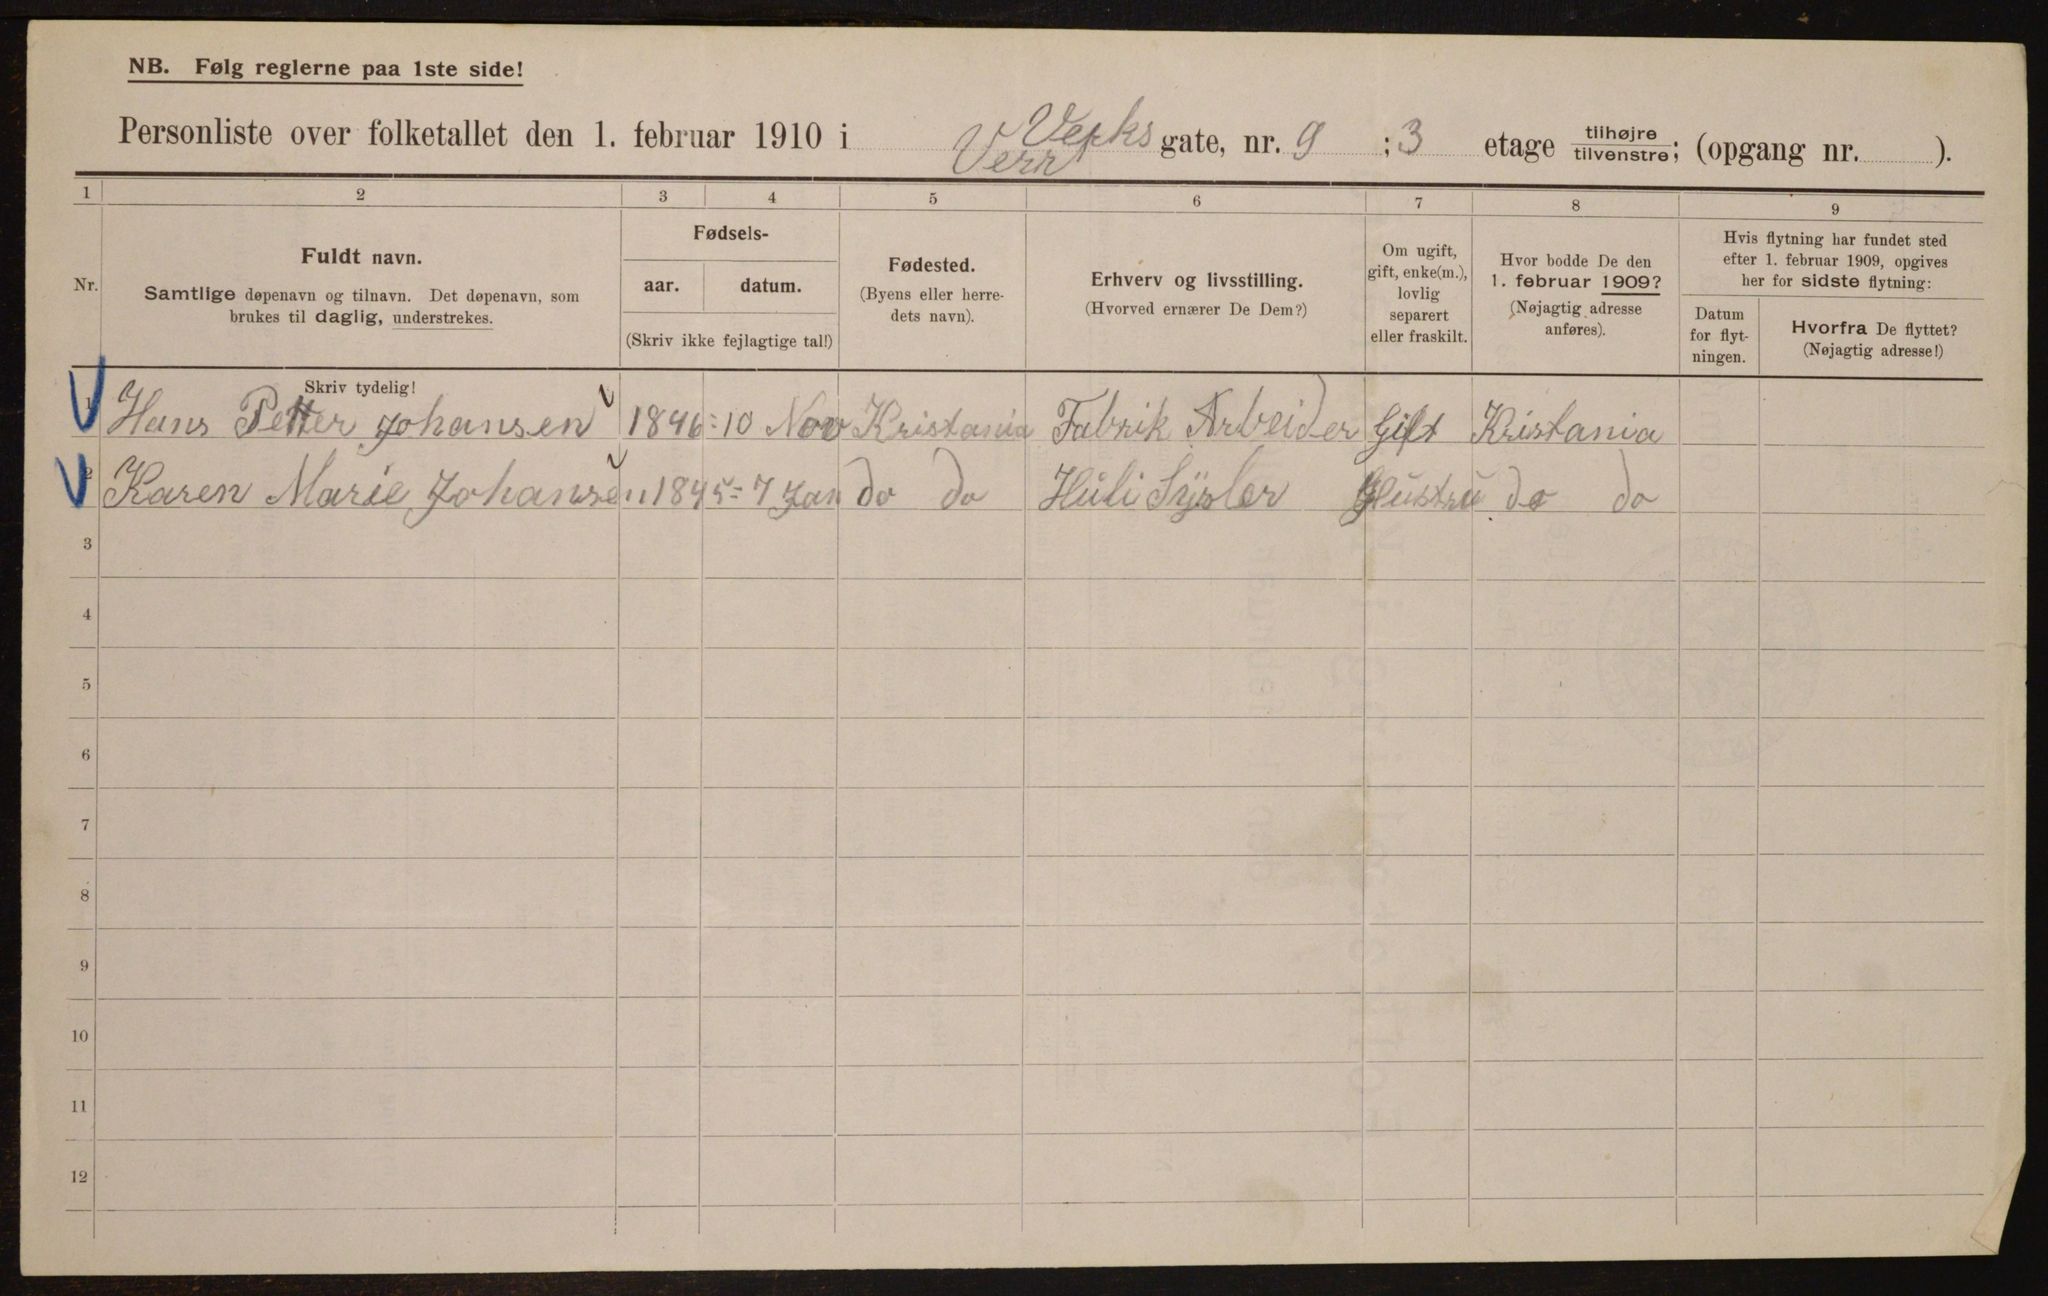 NB. Følg reglerne paa 1ste side!
Personliste over folketallet den 1. februar 1910 i Verks gate, nr. 9 ; 3 etage tilhøjre/tilvenstre; (opgang nr. ).
1 2 3 4 5 6 7 8 9
Nr.
Fuldt navn.
Samtlige døpenavn og tilnavn. Det døpenavn, som
brukes til daglig, understrekes.
Skriv tydelig!
Fødsels-
aar. datum.
(Skriv ikke fejlagtige tal!)
Fødested.
(Byens eller herre-
dets navn).
Erhverv og livsstilling.
(Hvorved ernærer De Dem?)
Om ugift,
gift, enke(m.),
lovlig
separert
eller fraskilt.
Hvor bodde De den
1. februar 1909?
(Nøjagtig adresse
anføres).
Hvis flytning har fundet sted
efter 1. februar 1909, opgives
her for sidste flytning:
Datum
for flyt-
ningen.
Hvorfra De flyttet?
(Nøjagtig adresse!)
1 Hans Petter Johansen 1846 10 Nov Kristania Fabrik Arbeider Gift Kristania
2 Karen Marie Johansen 1845 7 Jan do do Hustru do do
3
4
5
6
7
8
9
10
11
12